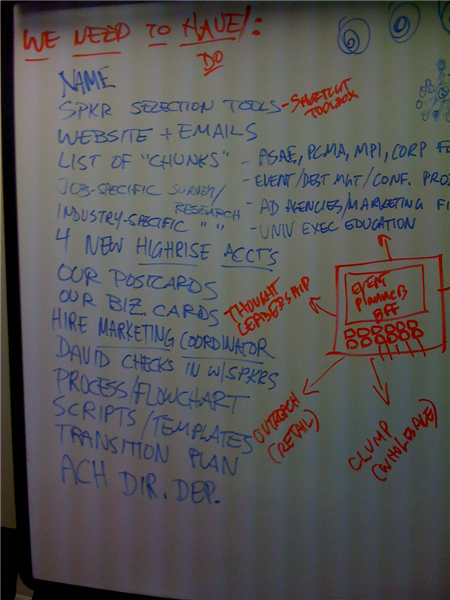 WE NEED TO HAVE/:
DO
NAME
SPKR SELECTION TOOLS - SHORTCUT
TOOLBOX
WEBSITE + EMAILS
LIST OF "CHUNKS" - ASAE, PCMA, MPI, CORP
JOB-SPECIFIC SURVEY/ - EVENT/DEST MGT/CONF.
RESEARCH
INDUSTRY-SPECIFIC " " - AD AGENCIES/MARKETING
- UNIV EXEC EDUCATION
4 NEW HIGHRISE ACCT'S
OUR POSTCARDS
OUR BIZ. CARDS
HIRE MARKETING COORDINATOR
DAVID CHECKS IN W/SPKRS
PROCESS/FLOWCHART
SCRIPTS/TEMPLATES
TRANSITION PLAN
ACH DIR. DEP.
THOUGHT
LEADERSHIP
EVENT
PLANNER'S
BFF
OUTREACH
(RETAIL)
CLUMP
(WHOLESALE)